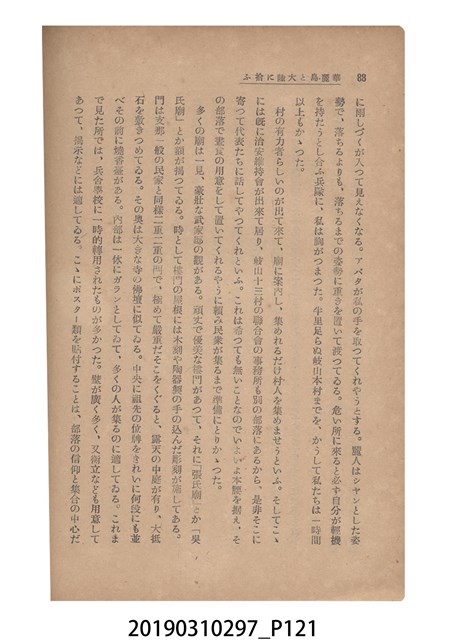 88　華麗島と大陸に拾ふ
に雨しづくが入つて見えなくなる。アバタが私の手を取つてくれやうとする。麗人はシヤンとした姿
勢で、落ちるよりも、落ちるまでの姿勢に重きを置いて渡つてゐる。危い所に來ると必ず自分が輕機
を持たうとし合ふ兵隊に、私は胸がつまつた。半里足らぬ岐山本村までを、かうして私たちは一時間
以上もかゝつた。
村の有力者らしいのが出て來て、廟に案內し、集めれるだけ村人を集めませうといふ。そしてこゝ
には既に治安維持會が出來て居り、岐山十三村の聯合會の事務所も別の部落にあるから、是非そこに
寄つて代表たちに話してやつてくれといふ。これは希つても無いことなのでいよいよ本腰を据え、そ
の部落で晝食の用意をして置いてくれるやうに賴み民衆が集るまで準備にとりかゝつた。
多くの廟は一見、豪壯な武家邸の觀がある。頑丈で優美な樓門があつて、それに「張氏廟」とか「吳
氏廟」とか額が揭つてゐる。時として樓門の屋根には木刻や陶器製の手の込んだ彫刻が施してある。
門は支那一般の民家と同樣二重三重の門で、極めて嚴重だそこをくぐると、露天の中庭が有り、大抵
石を敷きつめてゐる。その奧は大きな寺の佛壇に似てゐる。中央に祖先の位牌をきれいに何段にも並
べその前に燒香臺がある。內部は一体にガランとしてゐて、多くの人が集るのに適してゐる。これま
で見た所では、兵舍學校に一時的轉用されたものが多かつた。壁が廣く多く、又衝立なども用意して
あつて、揭示などには適してゐる。こゝにポスター類を貼付することは、部落の信仰と集合の中心だ
20190310297_P121